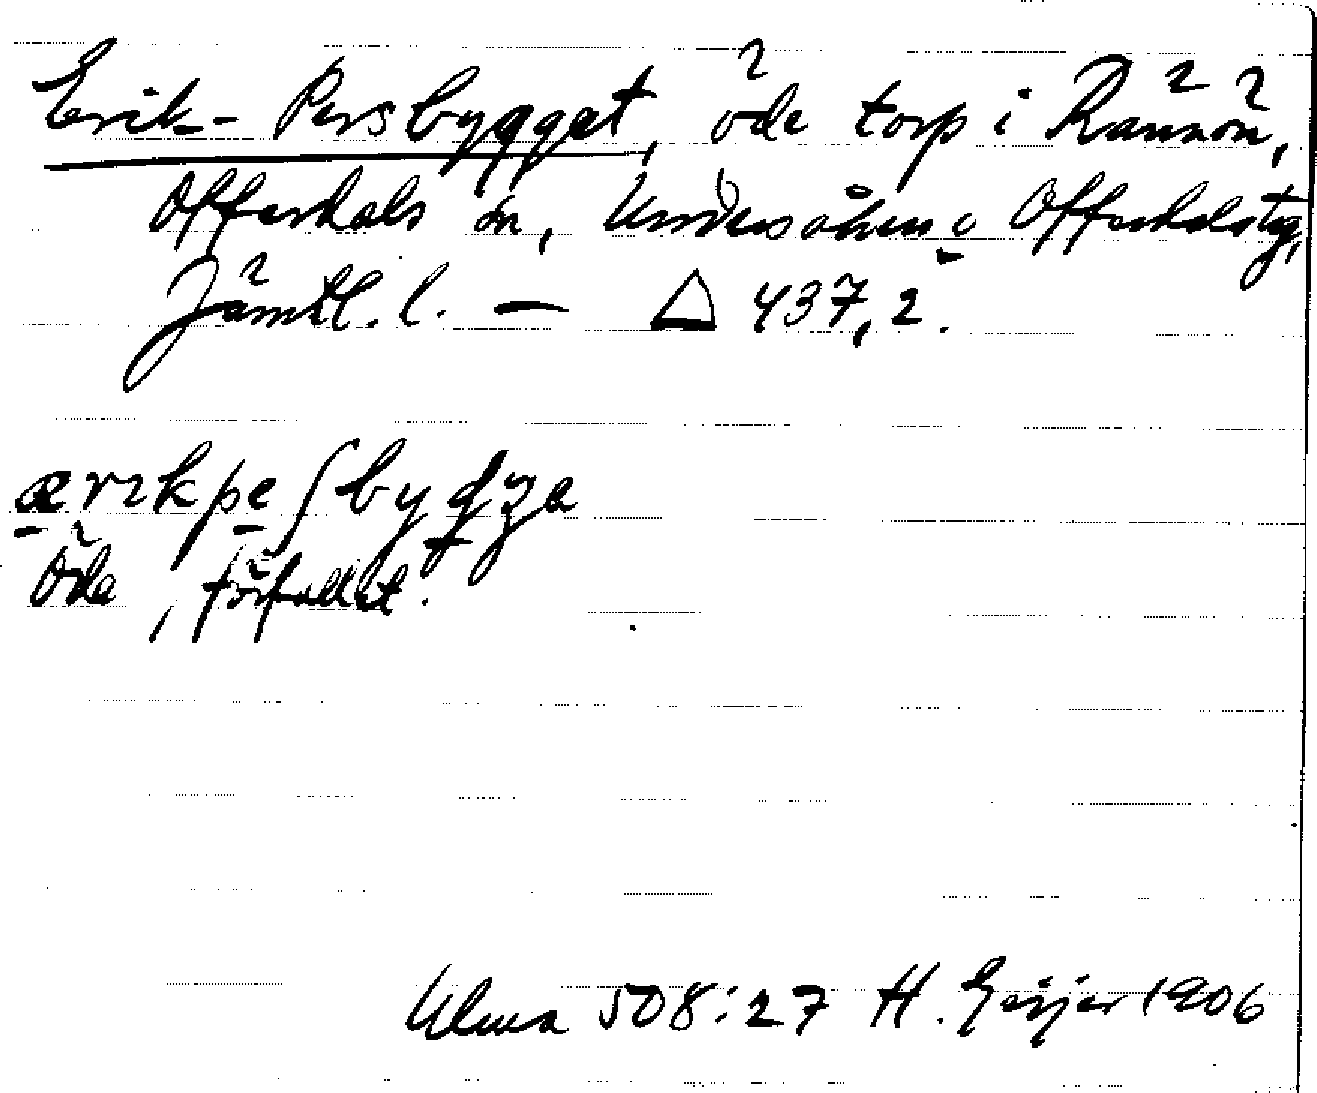 Erik-Persbygget, öde torp i Rännön,
Offerdals sn, Undersåkers o Offerdals tg,
Jämtl. l. — △ 437,2.
ærɩkpeʃbygʒa
Öde, förfallet.
Ulma 508:27 H. Geijer 1906